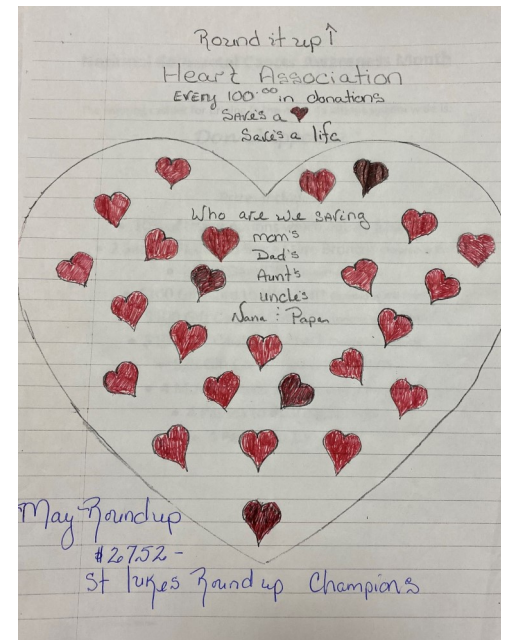 Round it up ↑
Heart Association
EVERY 100.00 in donations
SAVE'S a
Save's a life
Who are we SAVING
mom's
Dad's
Aunt's
uncle's
Nana : Papen
May Roundup
$2752-
St lukes Round up Champions